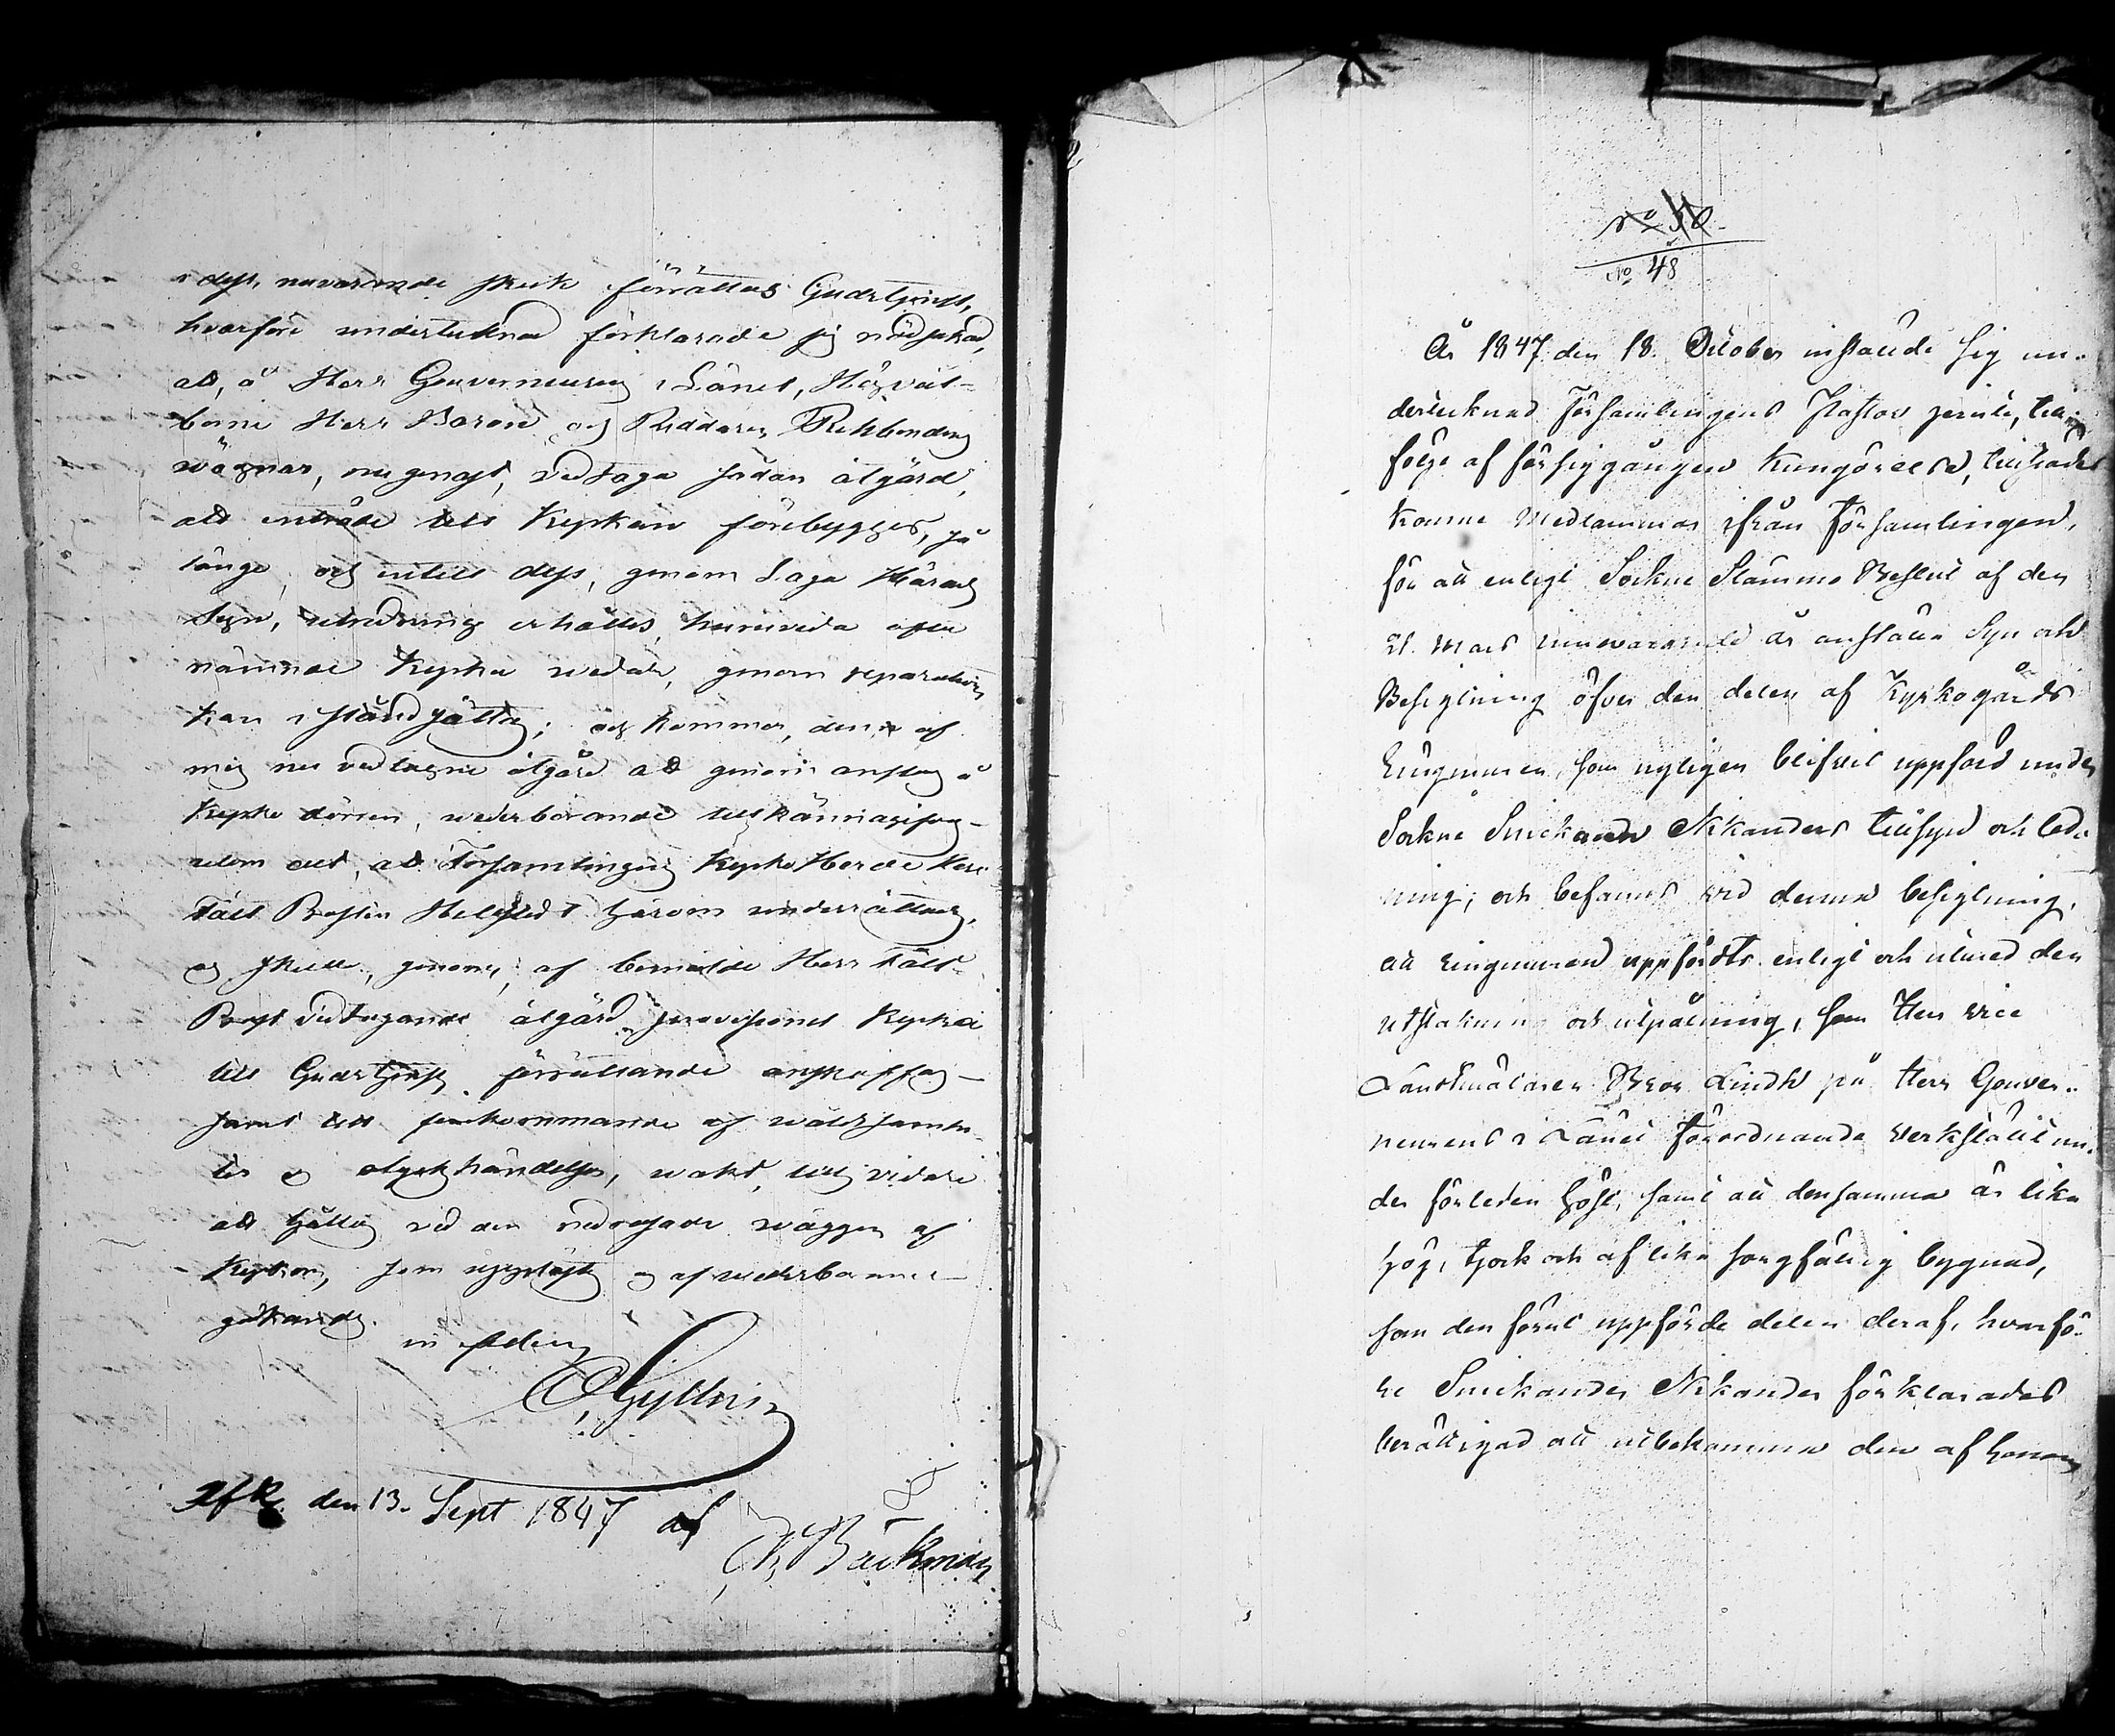 i dess nuvarande skick förrättas Gudstjenst,
hvarföre undertecknad förklarade sig nödsakad,
att, å Herr Gouverneurens i Länet, Högväl-
borne Herr Baron och Riddaren Rehbinders
wägnar, nu genast, vidtaga sådan åtgärd,
att inträde till Kyrkan förebygges, så
länge, och intill dess, genom Laga Härads
Syn, utredning erhålles, huruvida ofta
nämnde Kyrka widare, genom reparation
kan i ståndsättas; och kommer, denna af
mig nu vidtagne åtgärd att genom anslag å
Kyrko dörren, wederbörande tillkännagifvas –
utom det, att Församlingens Kyrko Herde Herr
Fält Prosten härom underrättas,
och skulle, genom, af bemälde Herr Fält
Prost vidtagande åtgärd provisionel Kyrka
till Gudstjensts förrättande anskaffas –
samt till förekommande af wåldsamhe-
ter och olyckshändelser, wakt, tills vidare
att hållas vid den nedrasade wäggen af
Kyrkan, som upplästes och af wederbörande
godkändes.
in fidem
Gyllin
Afk. den 13. Sept 1847 af
Bäckman
No 50
No 48
År 1847 den 18. October instälde sig un-
dertecknad Församlingens Pastor jemte, till
följe af försiggången Kungörelse, tillstädes
komne Medlemmar ifrån Församlingen,
för att enligt Sockne Stämmo Beslut af den
21. Mars innewarande år anställa Syn och
Besigtning öfver den delen af Kyrkogårds
Ringmuren, som nyligen blifvit uppförd under
Sockne Snickaren Nikanders tillsyn och led-
ning; och befanns vid denna besigtning,
att Ringmuren uppförts enligt och utmed den
utstakning och utpålning, som Herr Vice
Landtmätaren Bror Lindh på Herr Gouver-
neurens i Länet förordnande verkställt un-
der förleden höst, samt att densamma är lika
hög, tjock och af lika sorgfällig bygnad,
som den förut uppförde delen deraf, hvarfö-
re Snickaren Nikander förklarades
berättigad att utbekomma den af honom